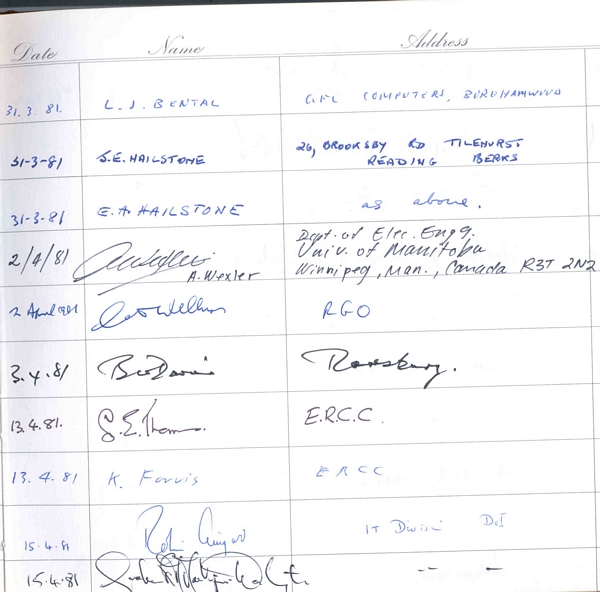 Date Name Address
31.3.81. L. J. BENTAL COMPUTERS,
31-3-81 S.E. HAILSTONE 26, BROOKSBY RD TILEHURST
READING BERKS
31-3-81 E.A HAILSTONE as above.
2/4/81 A. Wexler Dept. of Elec. Engg.
Univ. of Manitoba
Winnipeg, Man., Canada R3T 2N2
2 April 1981 RGO
3.4.81
13.4.81. E.R.C.C.
13.4.81 K. ERCC
15.4.81 IT Division DoI
15.4.81 -- -